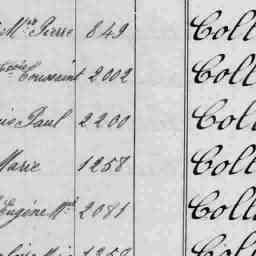 Mie Pierre 849 Coll
Toussaint 2002 Coll
Paul 2200 Coll
Marie 1258 Coll
Eugène Mie 2081 Coll
1258 Coll